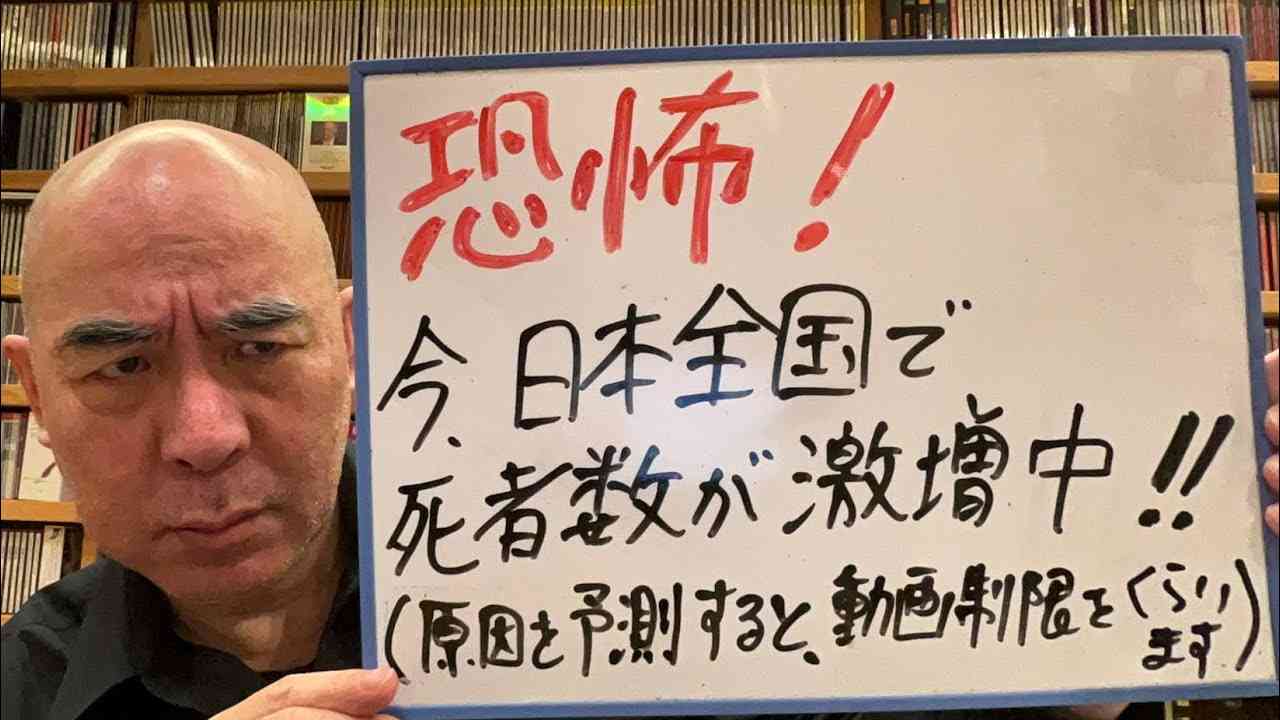 恐怖!
今、日本全国で
死者数が激増中!!
(原因を予測すると、動画制限をくらい
ます)